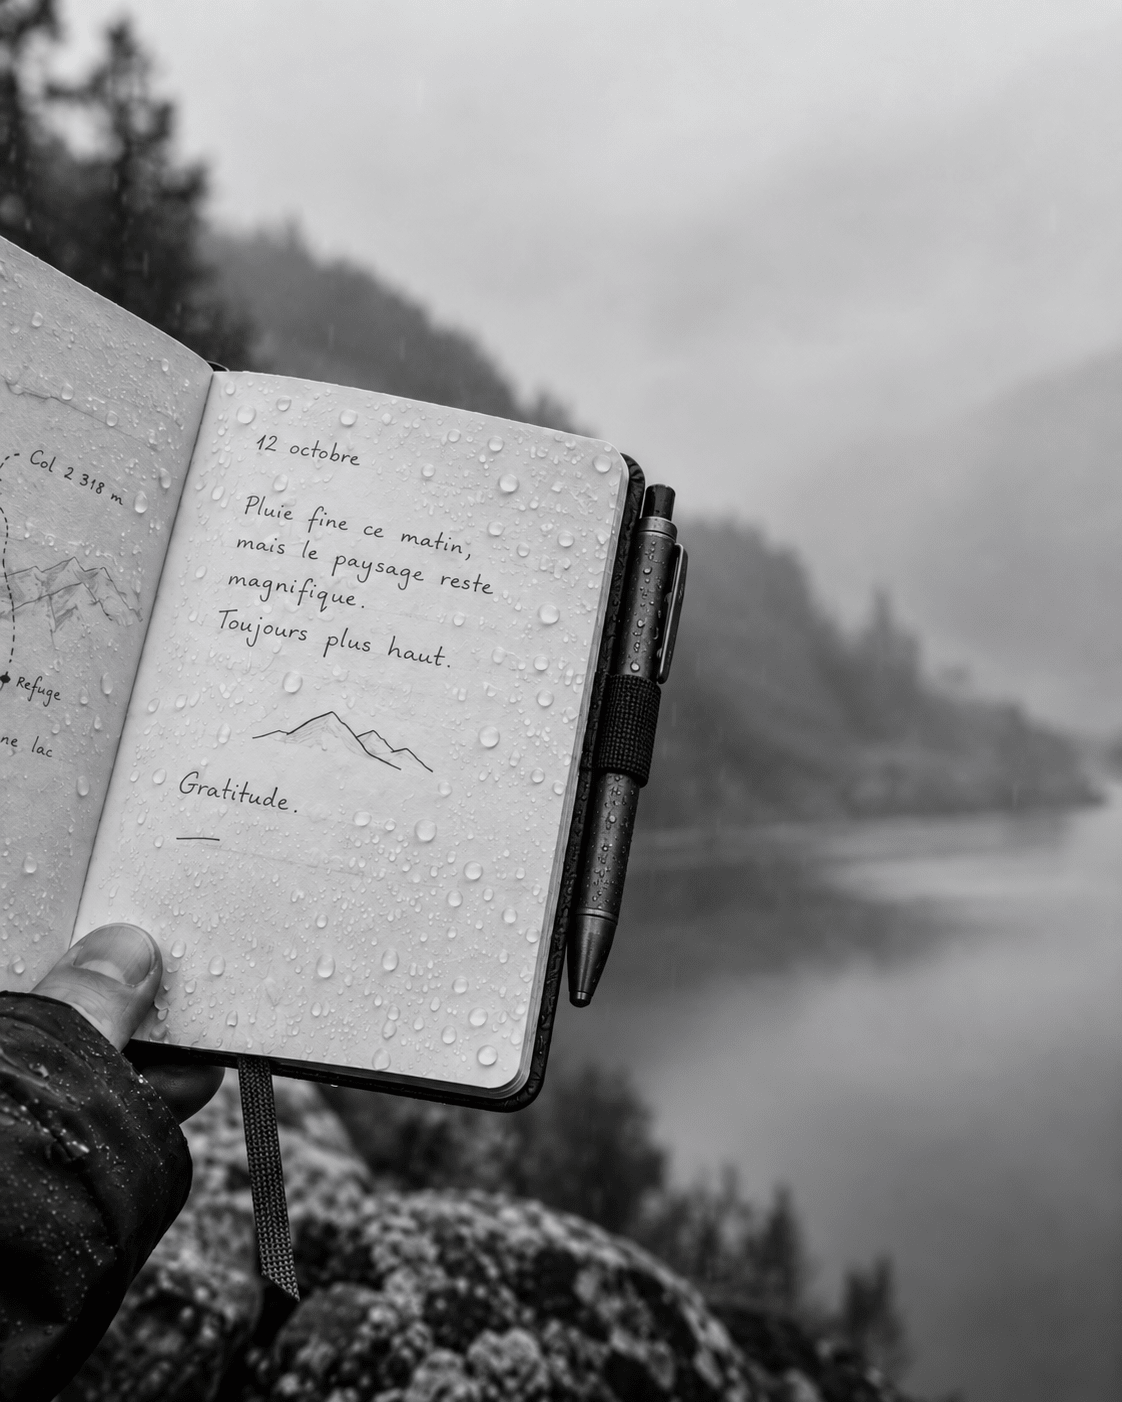 Col 2 318 m
Refuge
lac
12 octobre
Pluie fine ce matin,
mais le paysage reste
magnifique.
Toujours plus haut.
Gratitude.